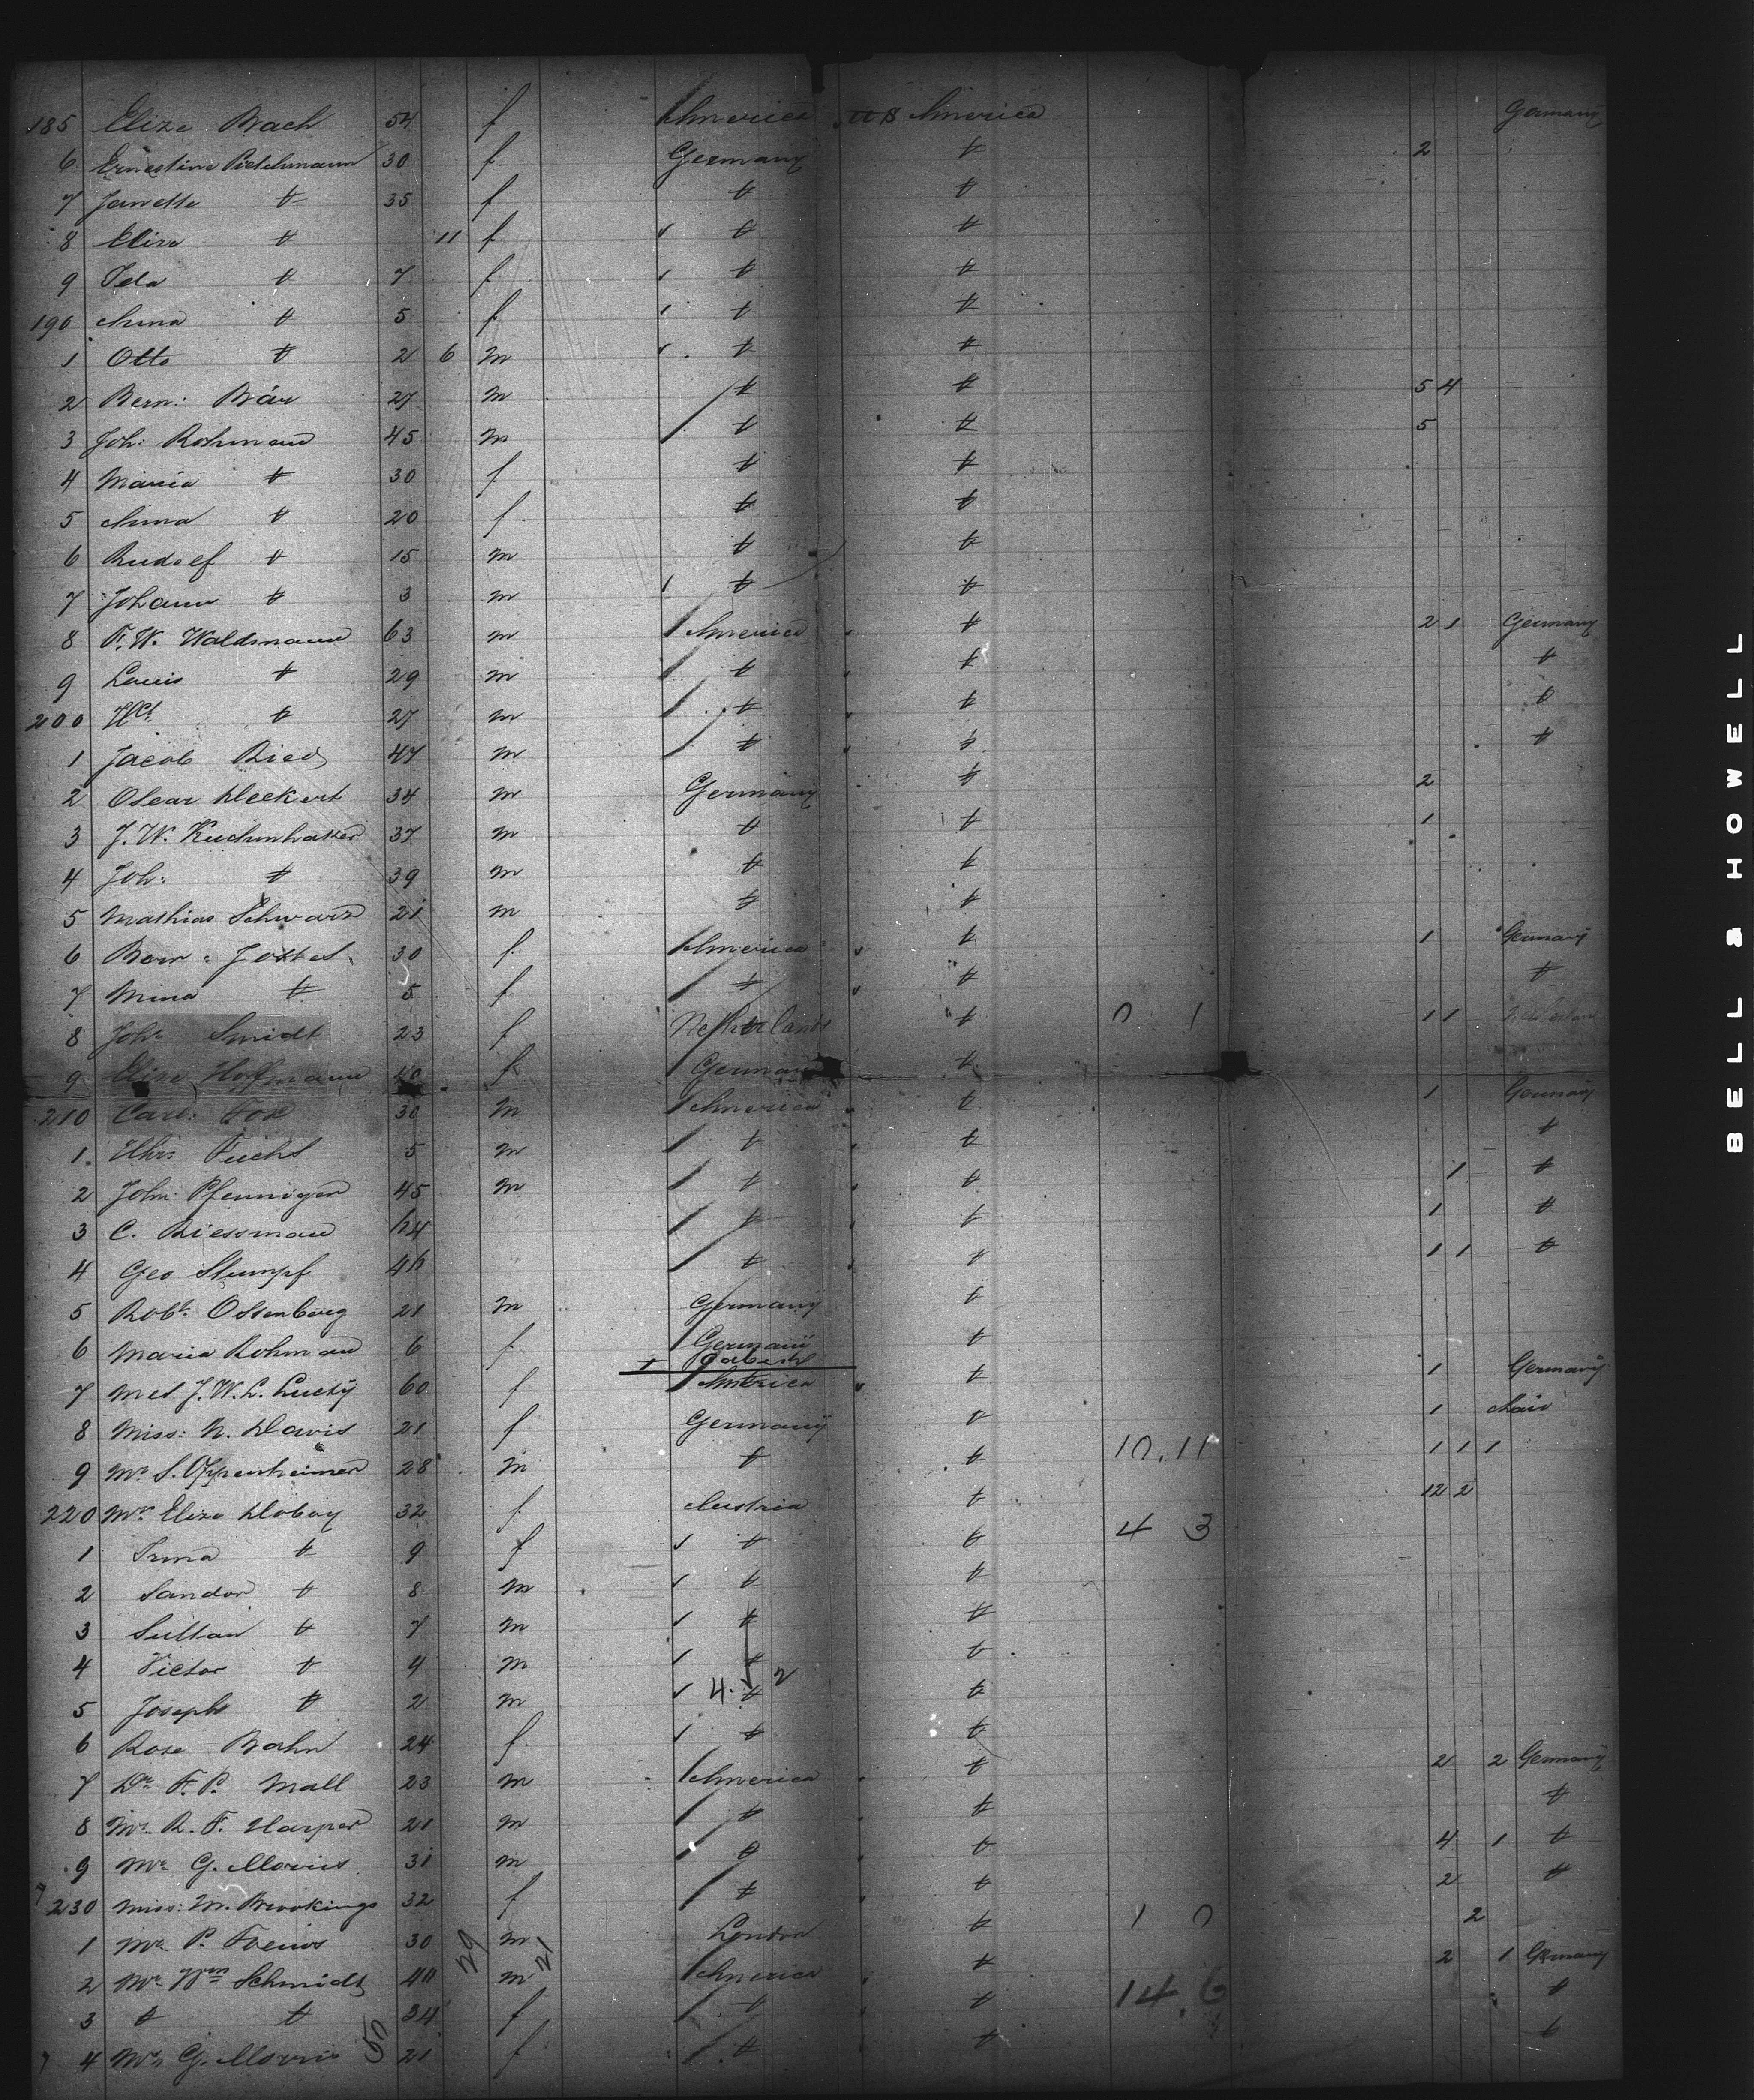 185 Elize Bach 54 f America U S America Germany
6 Ernestine 30 f Germany " 2
7 Janette " 35 f " "
8 Elise " 11 f " "
9 Ida " 7 f " "
190 Anna " 5 f " "
1 Otto " 2 6 m " "
2 Bern: Bär 27 m " " 5 4
3 Joh: Rohmann 45 m " " 5
4 Maria " 30 f " "
5 Anna " 20 f " "
6 Rudolf " 15 m " "
7 Johann " 3 m " "
8 F. W. Waldmann 63 m America " 2 1 Germany
9 Louis " 29 m " " "
200 " 27 m " " "
1 Jacob Ried 47 m " " "
2 Oscar Deckert 34 m Germany " 2
3 J. W. 37 m " " 1
4 Joh: " 39 m " "
5 Mathias Schwarz 21 m " "
6 30 f America " 1 Germany
7 Mina " 5 f " " "
8 Joh: Smidt 23 f Netherlands " 0 1 1 1
9 Elise Hoffmann 40 f Germany "
210 Carl: Fox 30 m America " 1 Germany
1 Chr: Fuchs 5 m " " "
2 John Pfenniger 45 m " " 1 "
3 C. Riessmann " " 1 "
4 Geo Stumpf " " 1 1 "
5 Robt: Ossenberg 21 m Germany "
6 Maria Rohmann 6 f Germany "
7 J. W. L. 60 f America " 1 Germany
8 Miss: N. Davis 21 f Germany " 1 chair
9 Mr S. Oppenheimer 28 m " " 10.11 1 1 1
220 Mrs Elise Dobay 32 f Austria " 4 3 12 2
1 Irma " 9 f " "
2 Sandor " 8 m " "
3 Sultan " 7 m " "
4 Victor " 4 m " "
5 Joseph " 2 m 4. " 2 "
6 Rose Bahn 24 f " "
7 Dr F. P. Mall 23 m America " 2 2 Germany
8 Mr R. F. Harper 21 m " " "
9 Mr G. Morris 31 m " " 4 1 "
230 Miss: M. Brookings 32 f " " 2 "
1 Mr P. 30 29 m 21 London " 1 0 2
2 Mr Wm Schmidt 40 m America " 2 1 Germany
3 " " 34 f " " 14.6 "
4 Mrs G. Morris 50 21 f " " "
BELL & HOWELL